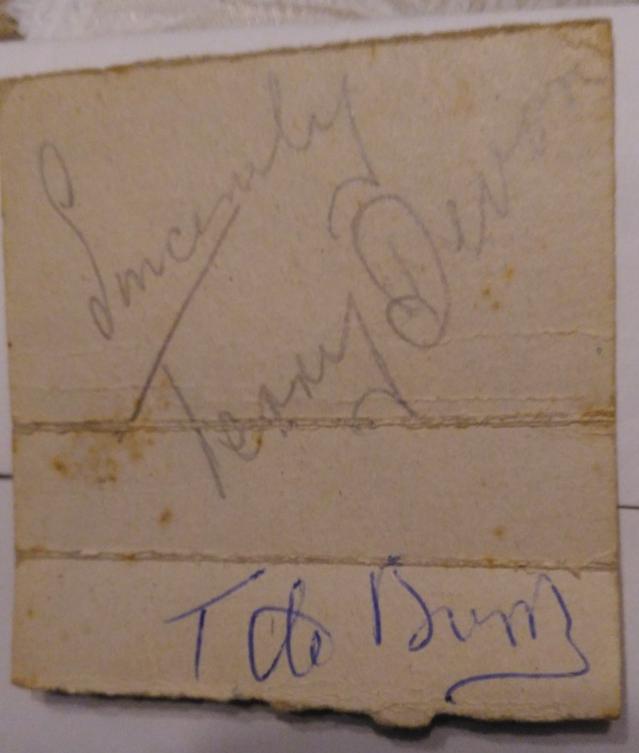 Sincerely
Terry Devon
Tito Burns